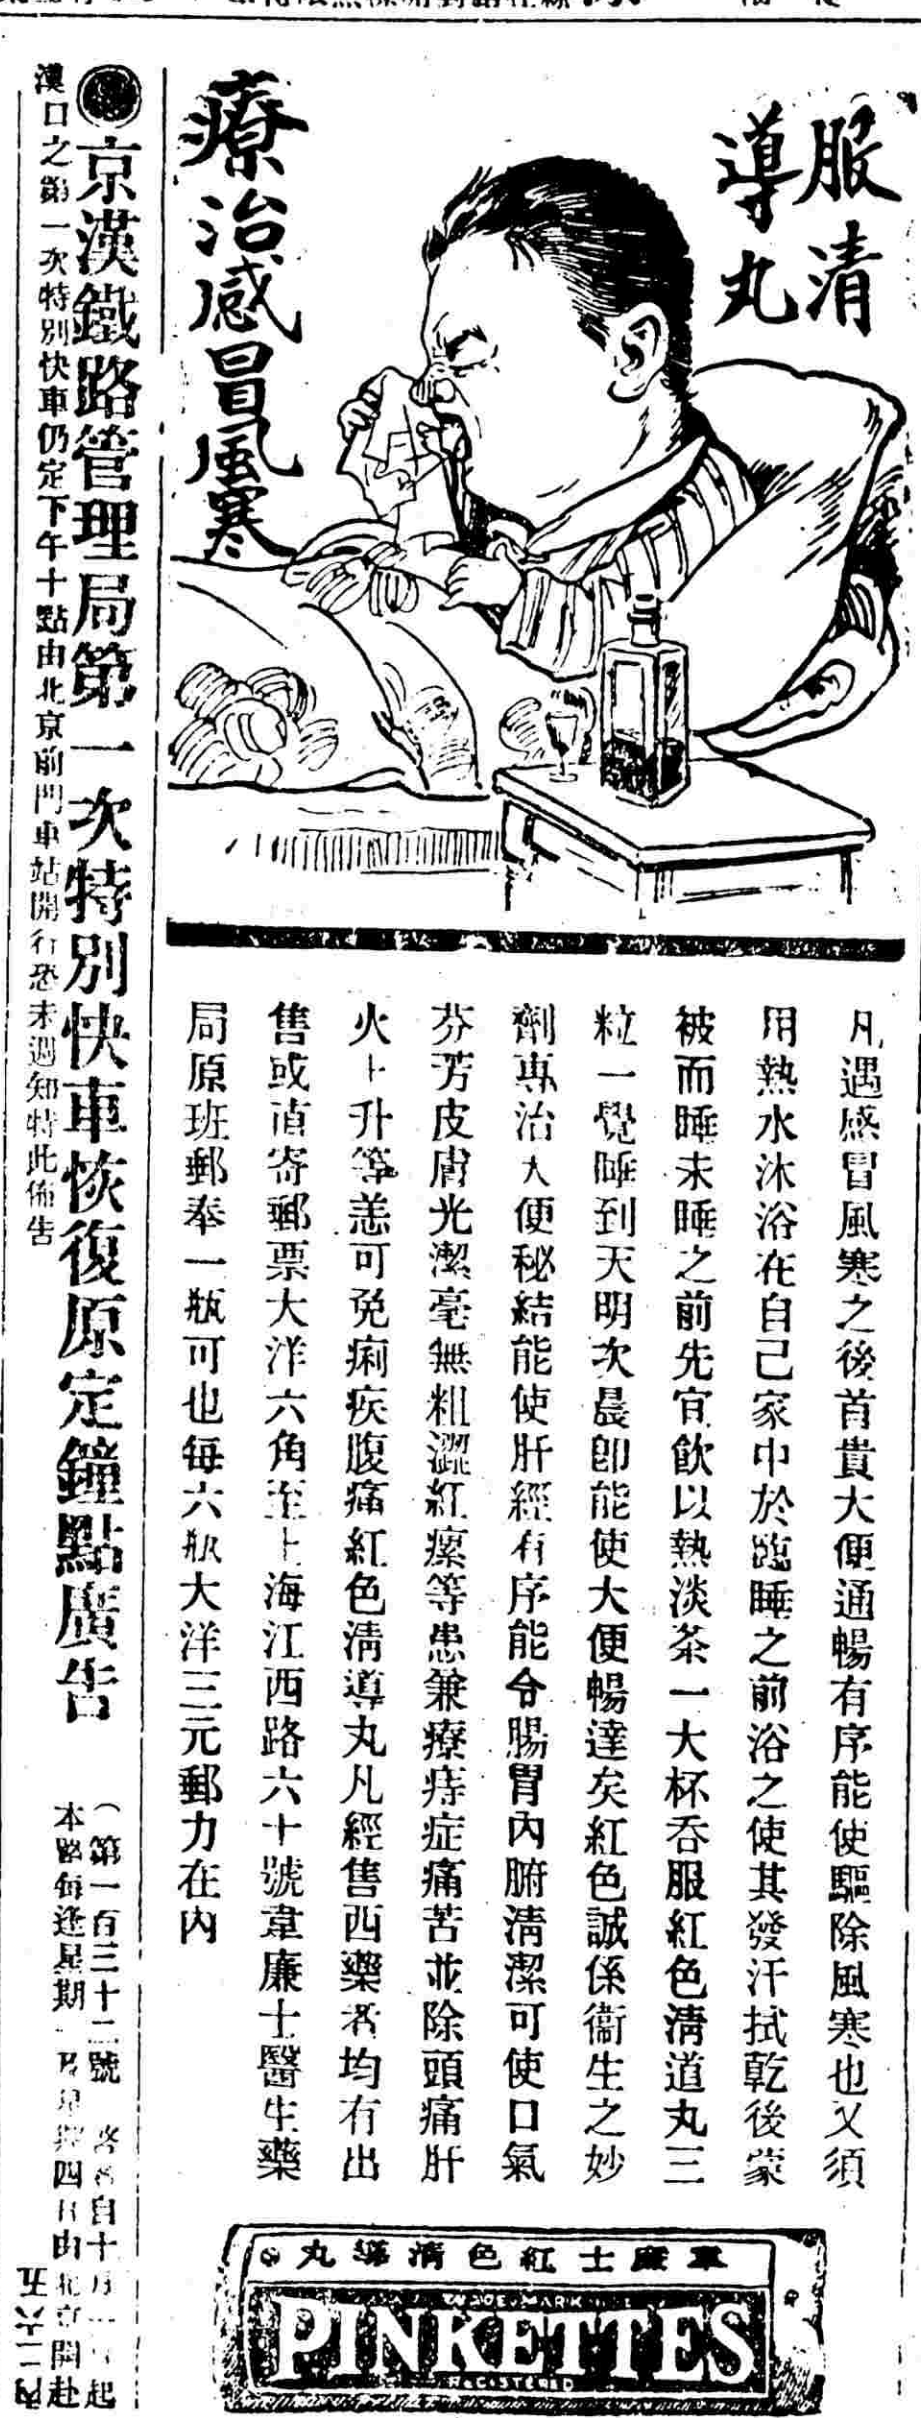 服清
導丸
療治感冒風寒
凡遇感冒風寒之後首貴大便通暢有序能使驅除風寒也又須
用熱水沐浴在自己家中於臨睡之前浴之使其發汗拭乾後蒙
被而睡未睡之前先宜飲以熱淡茶一大杯吞服紅色清道丸三
粒一覺睡到天明次晨卽能使大便暢達矣紅色誠係衞生之妙
劑專治大便秘結能使肝經有序能令腸胃內腑清潔可使口氣
芬芳皮膚光潔毫無粗澀紅瘰等患兼療痔症痛苦並除頭痛肝
火上升等恙可免痢疾腹痛紅色清導丸凡經售西藥者均有出
售或直寄郵票大洋六角至上海江西路六十號韋廉士醫生藥
局原班郵奉一瓶可也每六瓶大洋三元郵力在內
韋廉士紅色清導丸
TRADE MARK
PINKETTES
REGISTERED
京漢鐵路管理局第一次特別快車恢復原定鐘點廣告
(第一百三十二號 自十月起
本路每逢星期一及星期四日由北京開赴
漢口之第一次特別快車仍定下午十點由北京前門車站開行恐未週知特此佈告